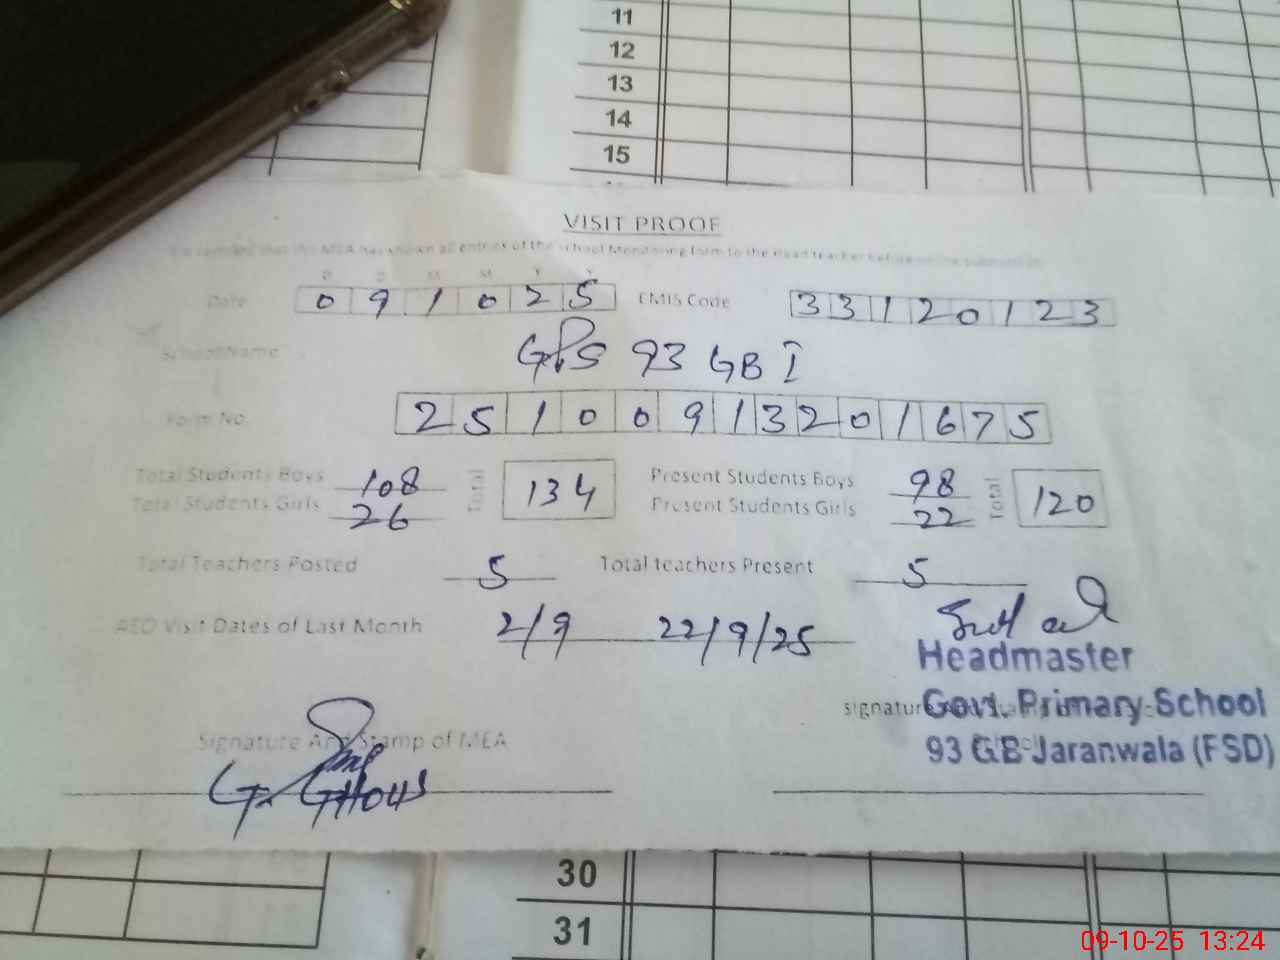 11
12
13
14
15
VISIT PROOF
It is certified that the MEA has shown all entries of the school Monitoring form to the Head teacher before online submission
D D M M Y Y
Date 0 9 1 0 2 5 EMIS Code 3 3 1 2 0 1 2 3
School Name GPS 93 GB I
Form No 2 5 1 0 0 9 1 3 2 0 1 6 7 5
Total Students Boys 108 Total 134 Present Students Boys 98 Total 120
Total Students Girls 26 Present Students Girls 22
Total Teachers Posted 5 Total teachers Present 5
AEO Visit Dates of Last Month 2/9 22/9/25
Headmaster
signature Govt. Primary School
93 GB Jaranwala (FSD)
Signature And Stamp of MEA
G. GHOUS
30
31
09-10-25 13:24